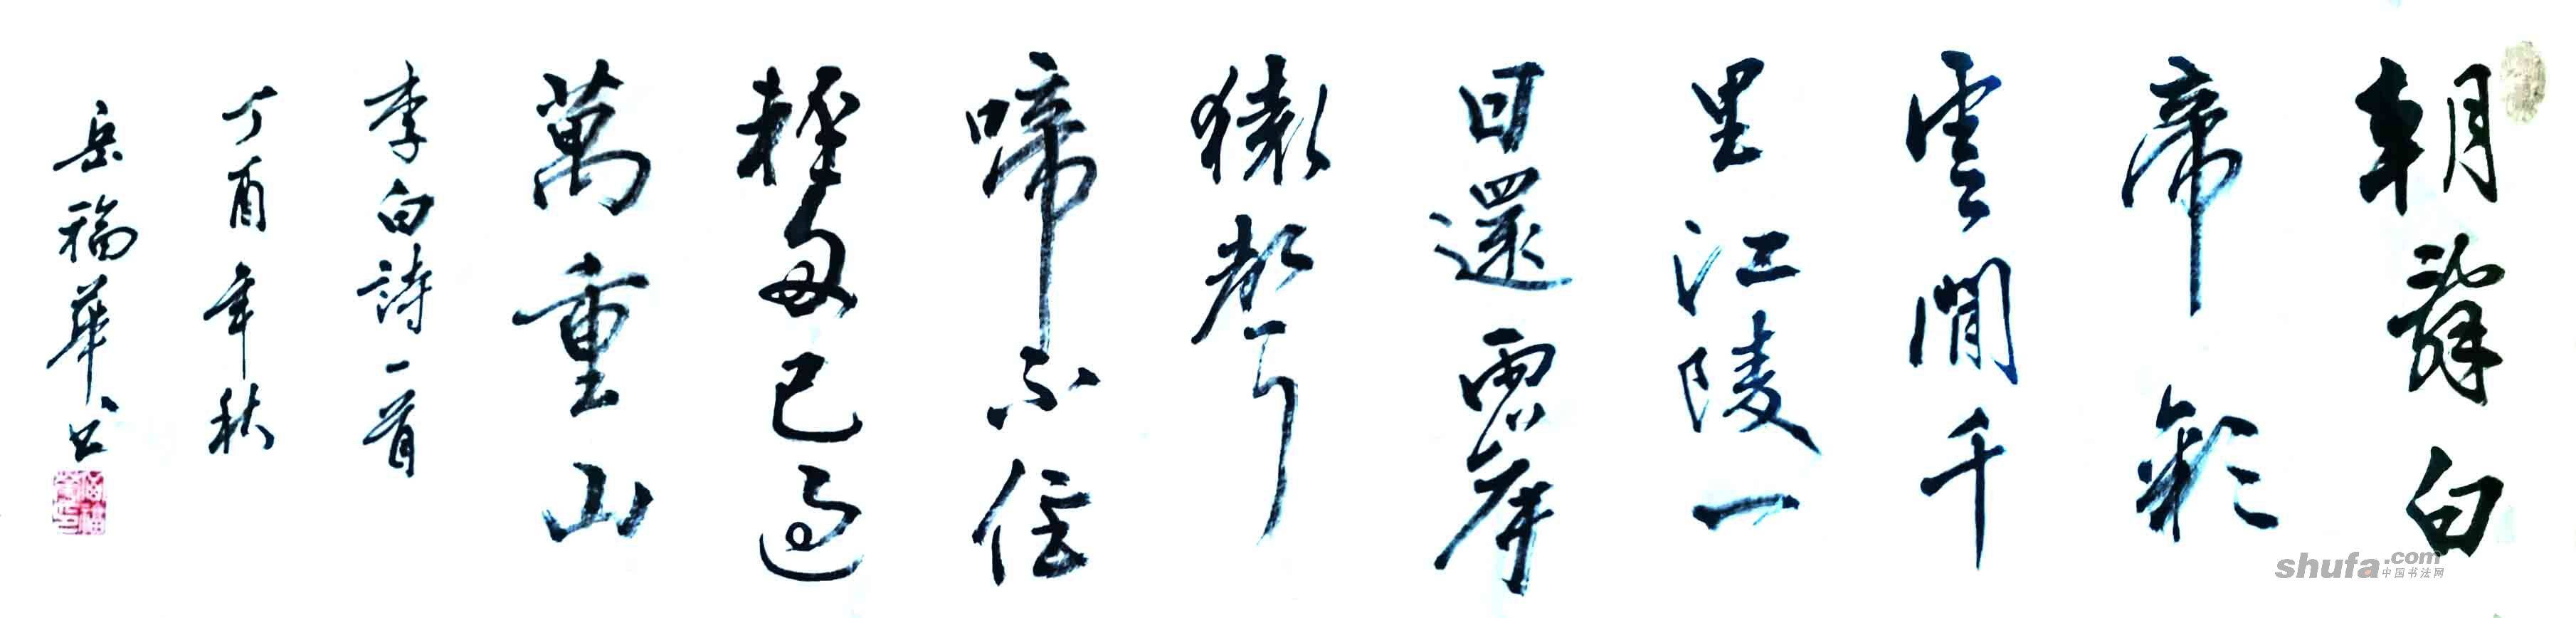 朝辭白
帝彩
雲間千
里江陵一
日還兩岸
猿聲
啼不住
輕舟已過
萬重山
李白詩一首
丁酉年秋
岳福華書
shufa.com
中国书法网